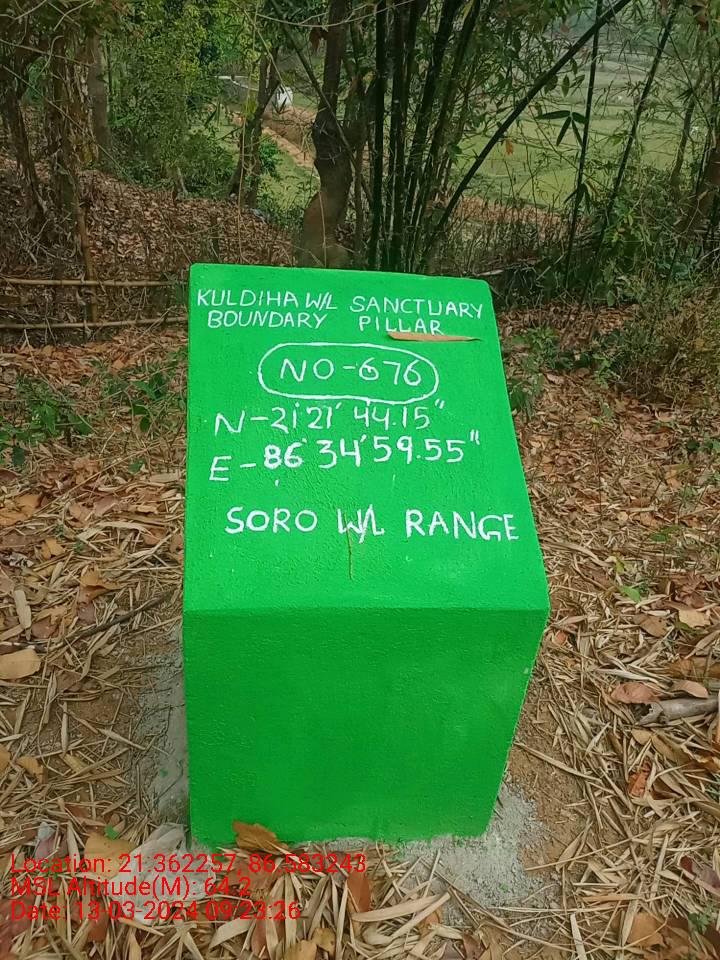 KULDIHA W/L SANCTUARY
BOUNDARY PILLAR
NO-676
N-21°21'44.15"
E-86°34'59.55"
SORO W/L RANGE
Location: 21.362257, 86.583243
MSL Altitude(M): 64.2
Date: 13-03-2024 09:23:26